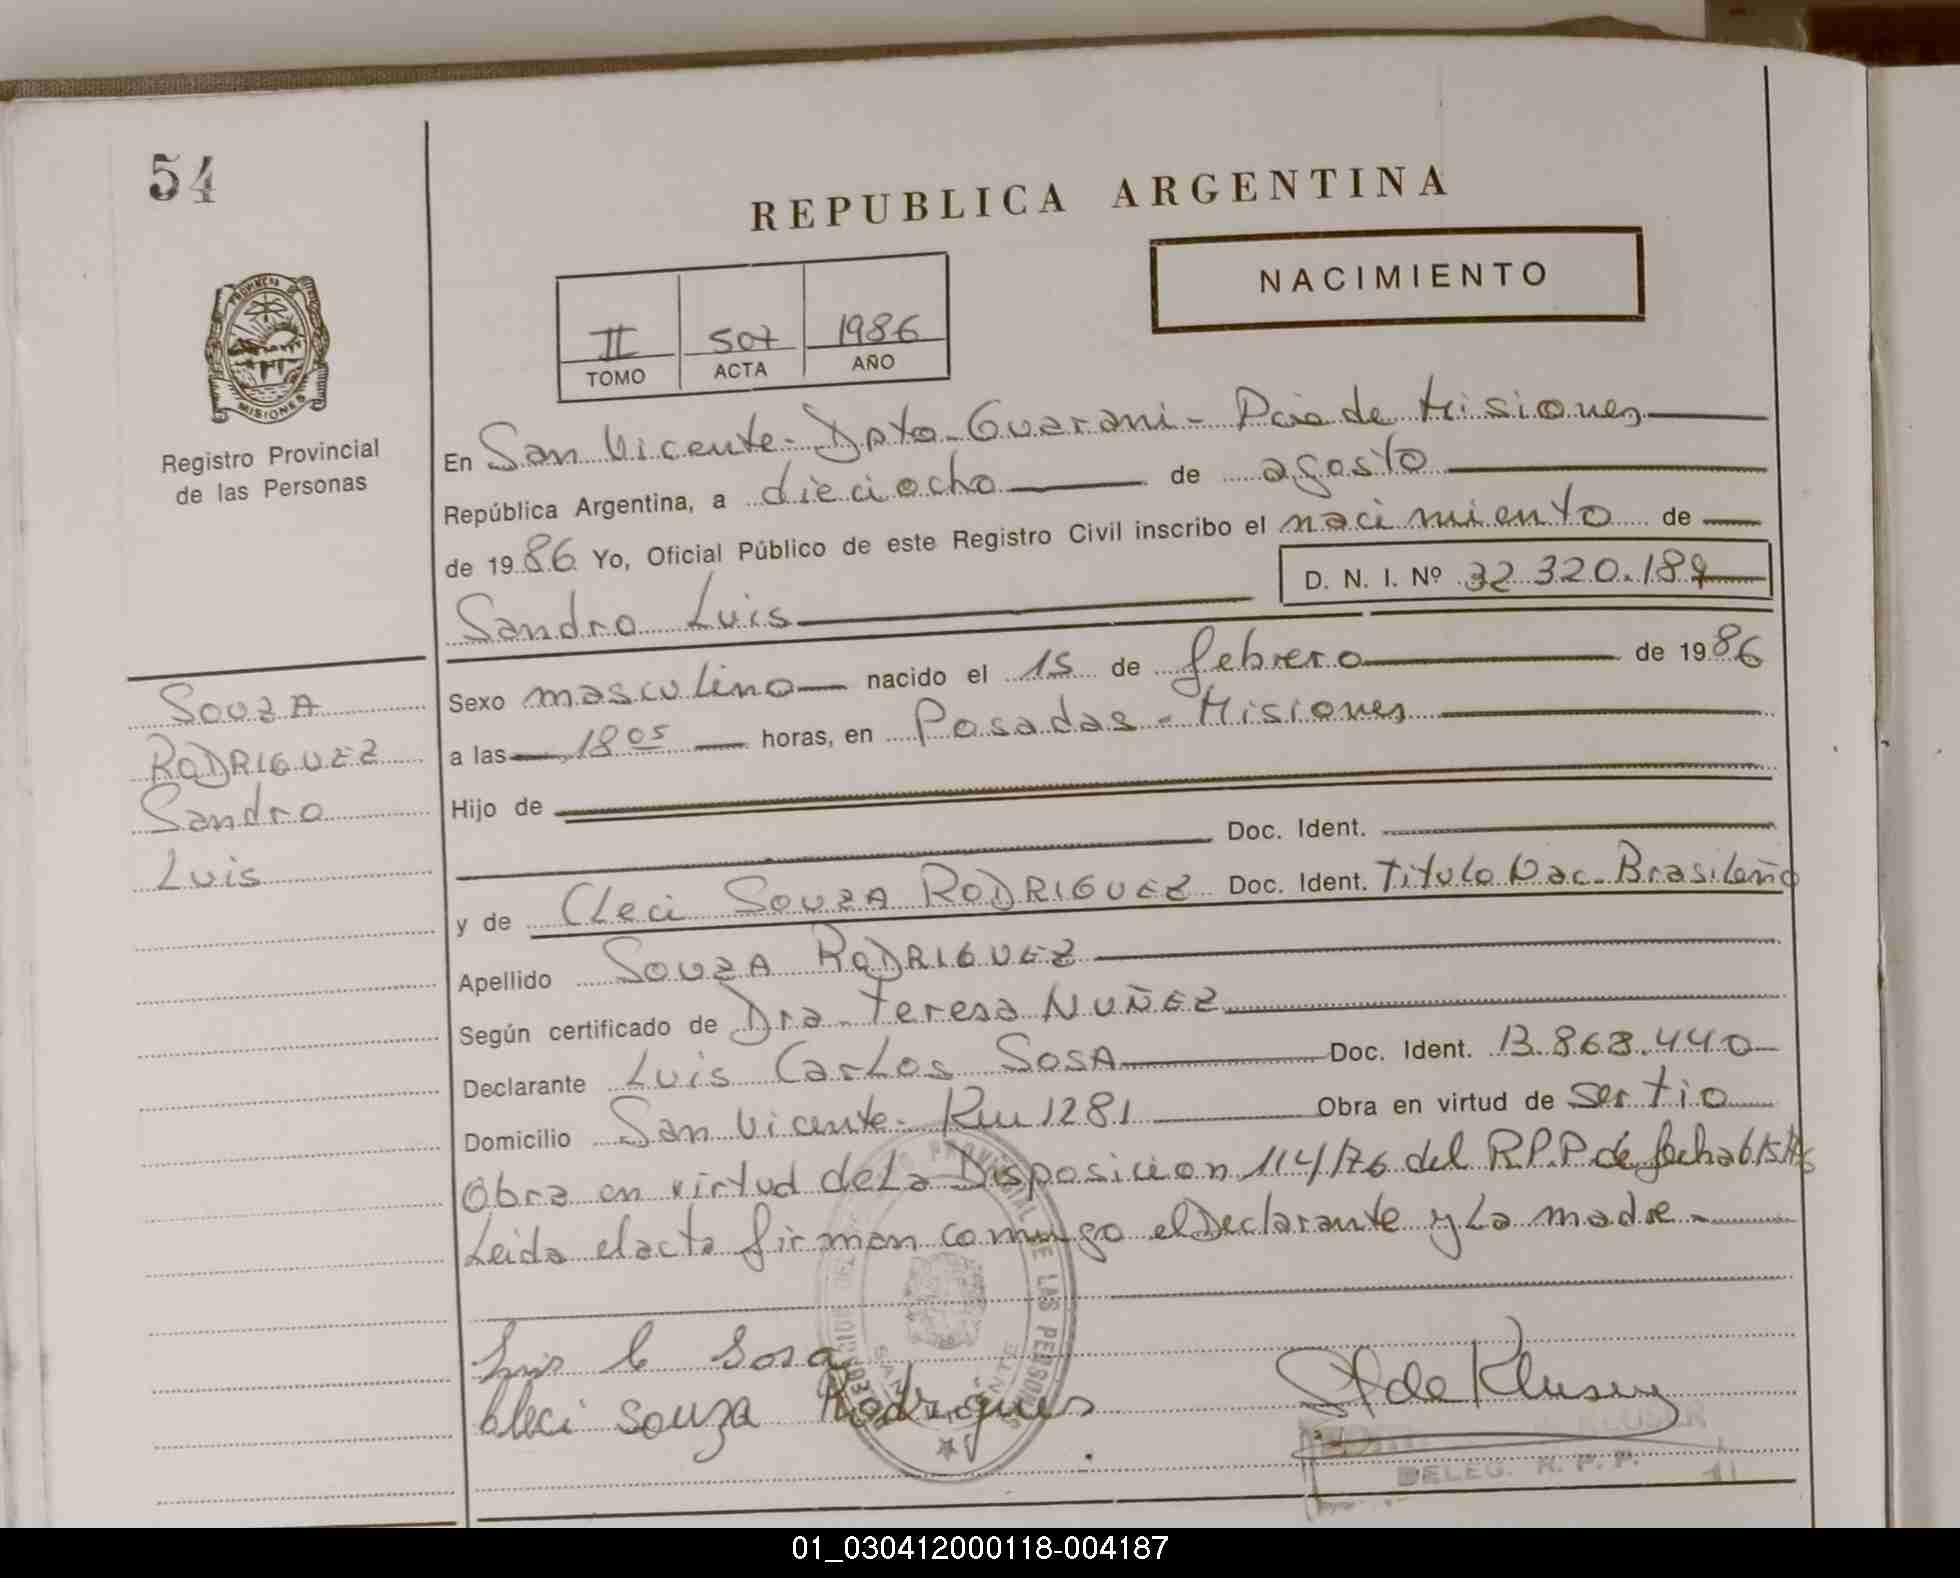 54
REPUBLICA ARGENTINA
NACIMIENTO
II 507 1986
TOMO ACTA AÑO
PROVINCIA DE
MISIONES
Registro Provincial
de las Personas
En San Vicente - Dpto. Guarani - Pcia de Misiones
República Argentina, a dieciocho de agosto
de 1986 Yo, Oficial Público de este Registro Civil inscribo el nacimiento de
D. N. I. Nº 32.320.189
Sandro Luis
SOUZA
RODRIGUEZ
Sandro
Luis
Sexo masculino nacido el 15 de febrero de 1986
a las 18 05 horas, en Posadas - Misiones
Hijo de
Doc. Ident.
y de Cleci SOUZA RODRIGUEZ Doc. Ident. Titulo Nac. Brasileño
Apellido SOUZA RODRIGUEZ
Según certificado de Dra. Teresa NUÑEZ
Declarante Luis Carlos SOSA Doc. Ident. 13.868.440
Domicilio San Vicente - Km 1281 Obra en virtud de ser tio
Obra en virtud de La Disposicion 114/76 del R.P.P de fecha
Leida el acta firman conmigo el Declarante y La madre -
Luis C Sosa
Cleci Souza Rodrigues
DELEG. R. P. P.
01_030412000118-004187